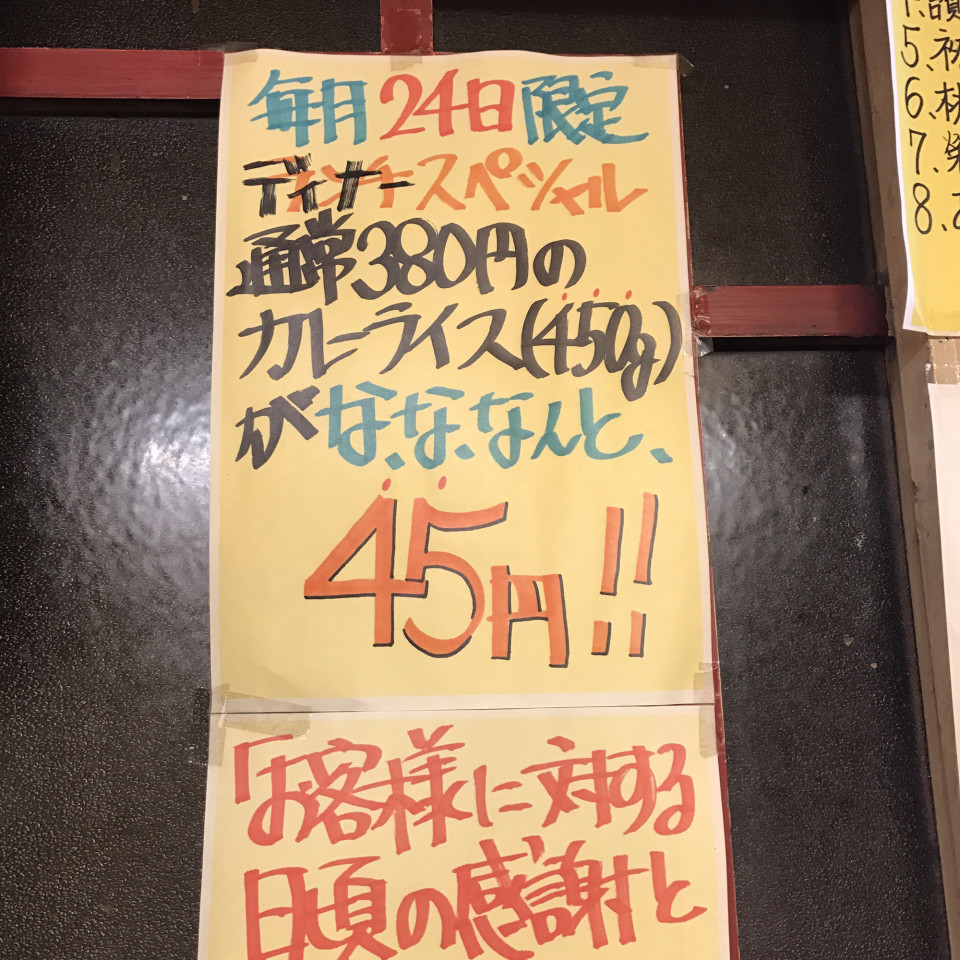 毎月24日限定
ディナースペシャル
通常380円の
カレーライス(450g)
がな、な、なんと、
45円!!
「お客様に対する
日頃の感謝と
5.
6.
7.
8.